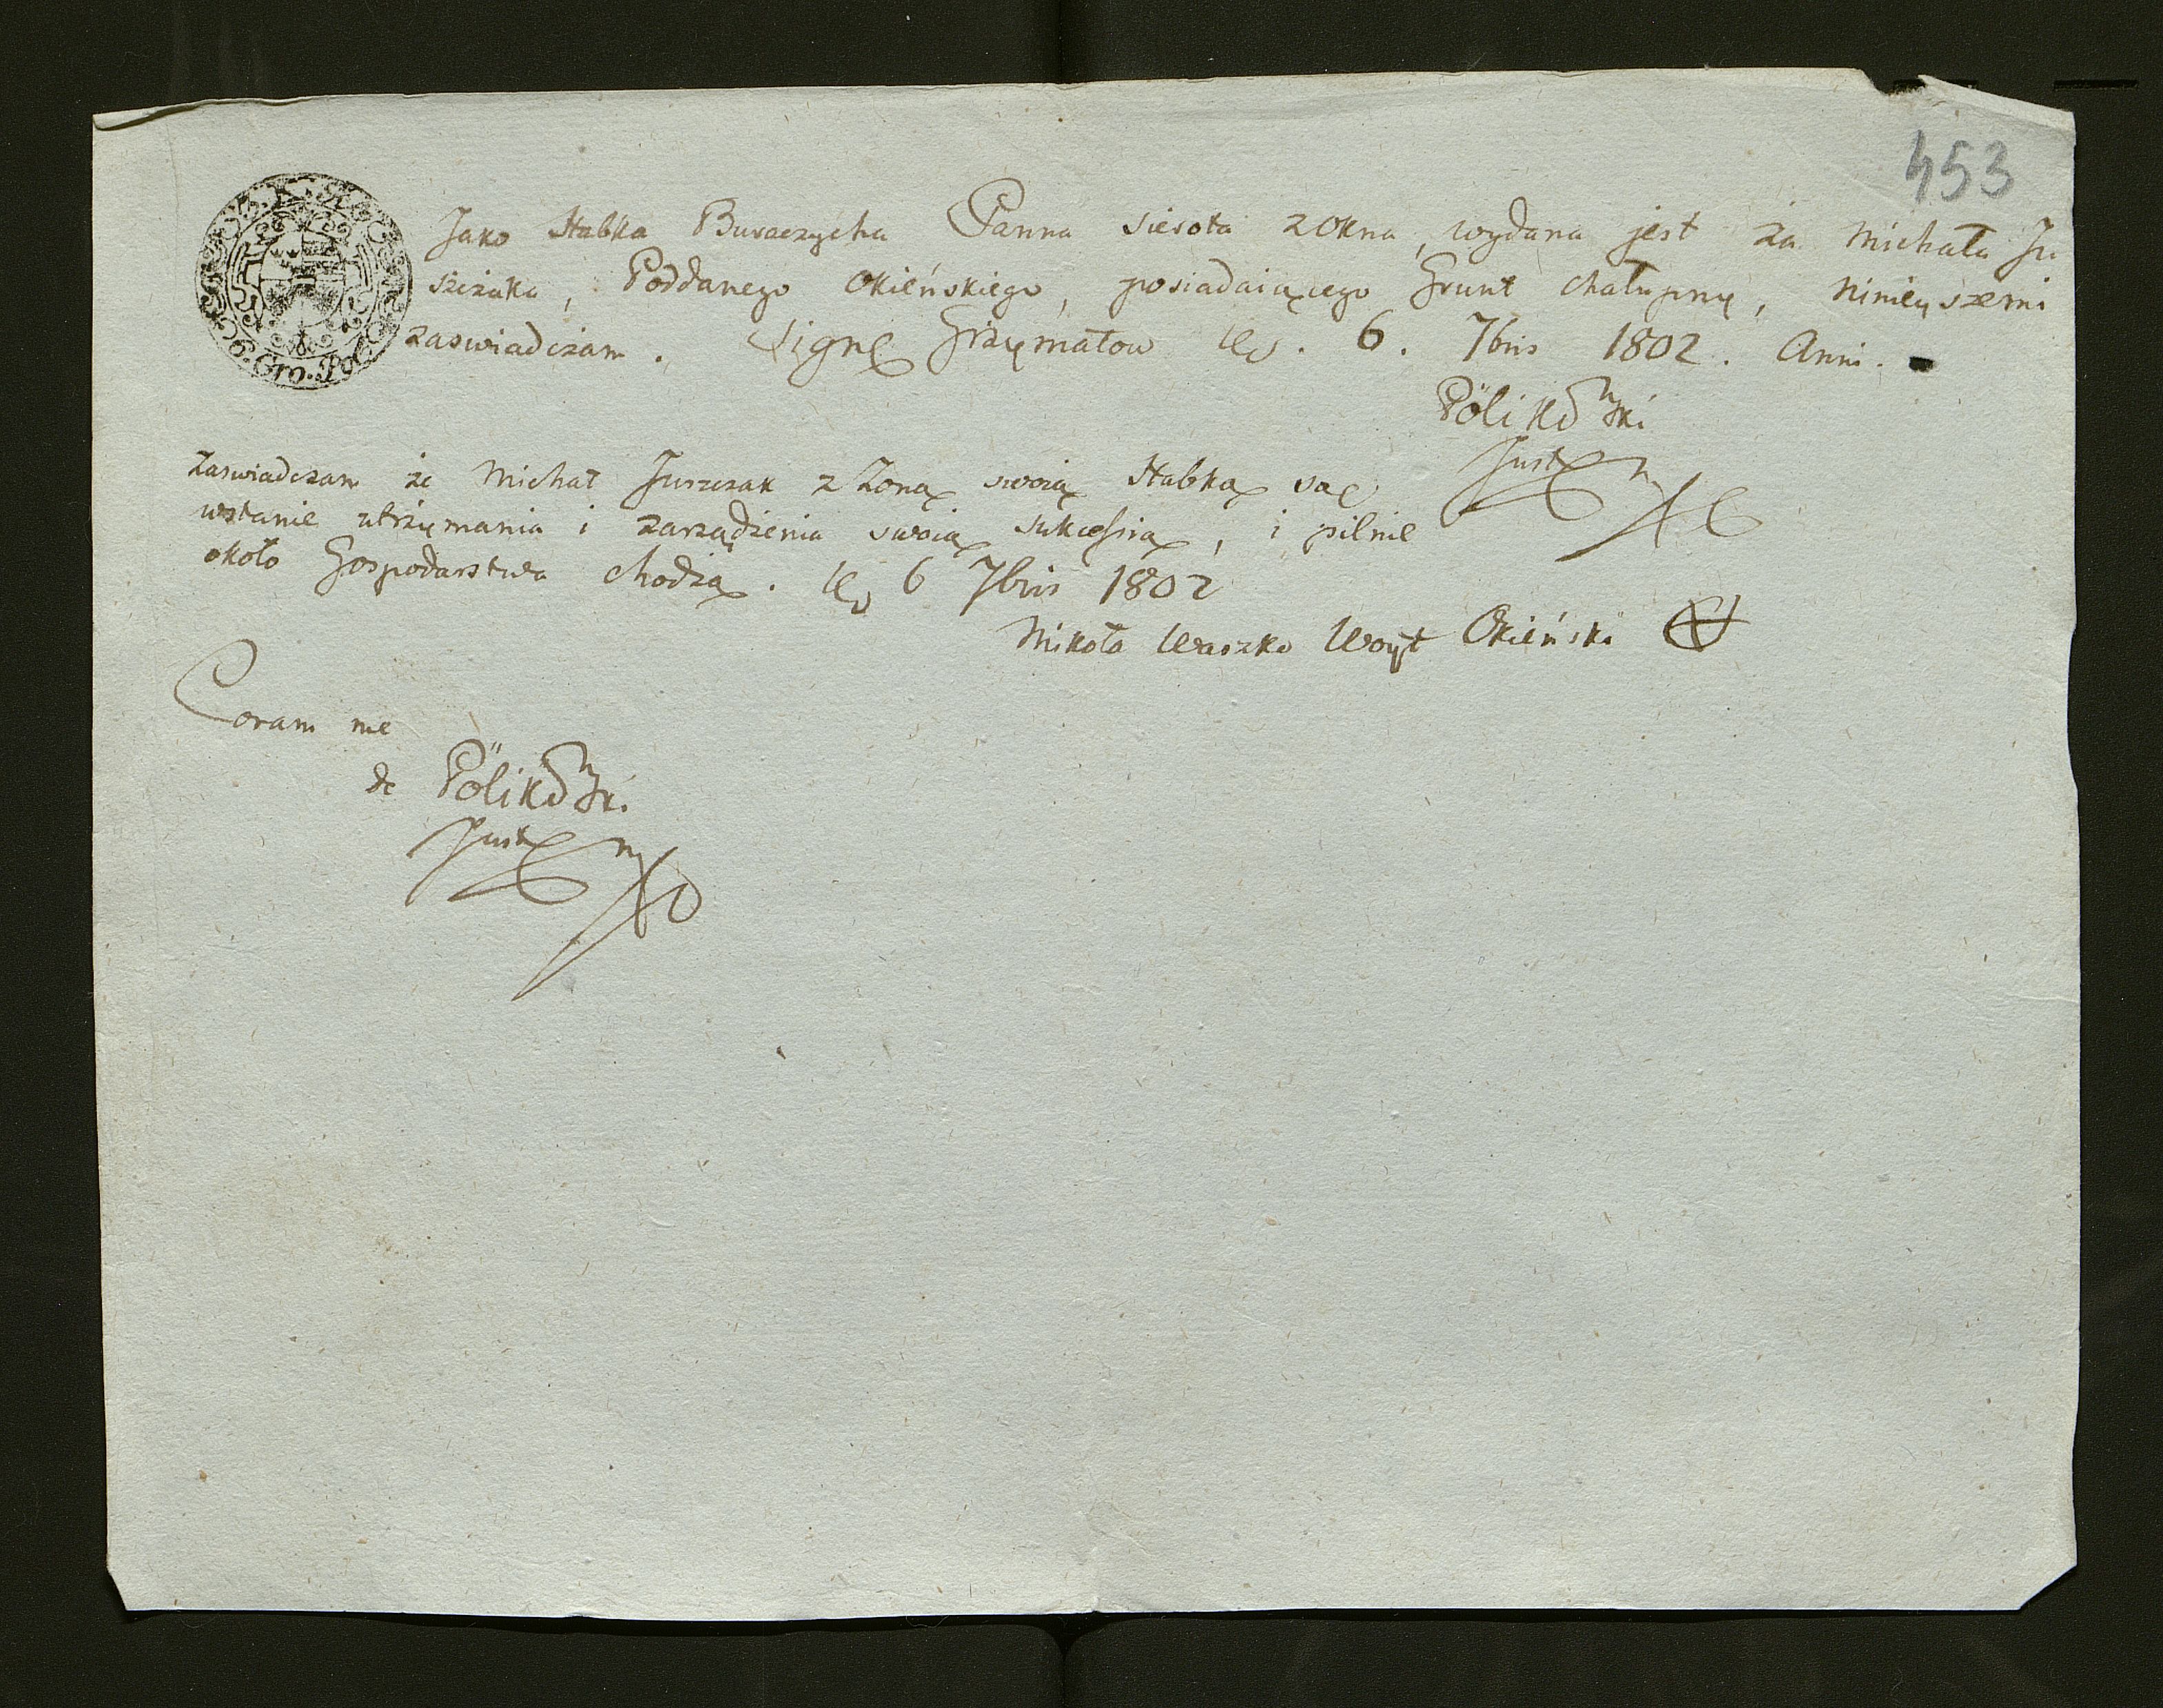 453
Jako Habka Buraczycha Panna sierota z Okna, wydana jest za Michała Ju
szczaka, Poddanego Okieńskiego, posiadaiącego Grunt chałupny, Ninieyszemi
zaswiadczam. Sign Grzymałow 6. 7bris 1802. Anni.
Pölikowski
Just
Zaswiadczam że Michał Juszczak z Zoną swoią Habką są
wstanie utrzymania i zarządzenia swoią sukcessią, i pilnie
około Gospodarstwa chodzą. 6 7bris 1802
Mikoła Waszko Woyt Okieński
Coram me
de Pölikowski
Just
Gro. Pol.